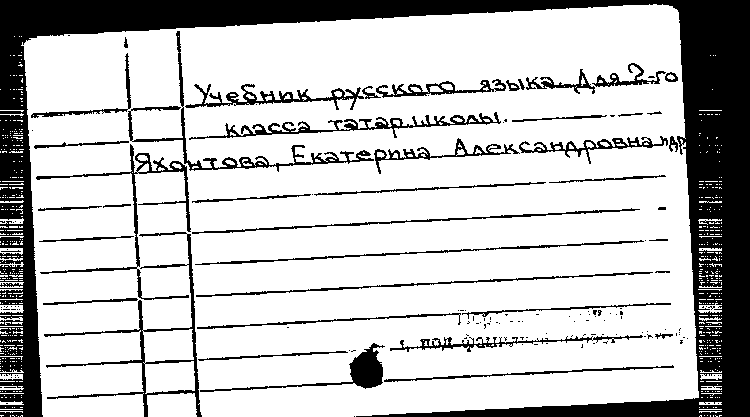 Учебник русского языка. Для 2-го
класса татар.школы.
Яхонтова, Екатерина Александровна и др
под